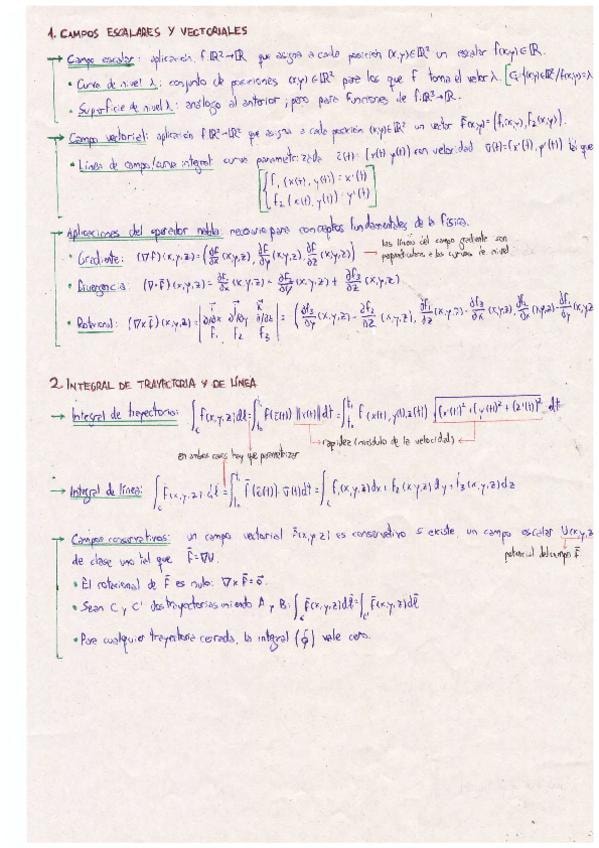 1. CAMPOS ESCALARES Y VECTORIALES
→ Campo escalar: aplicación f:ℝ²→ℝ que asigna a cada posición (x,y)∈ℝ² un escalar f(x,y)∈ℝ.
• Curva de nivel λ: conjunto de posiciones (x,y)∈ℝ² para los que f toma el valor λ.
• Superficie de nivel λ: análogo al anterior, pero para funciones de
→ Campo vectorial: aplicación f:ℝ²→ℝ² que asigna a cada posición (x,y)∈ℝ² un vector f̄(x,y)=(f₁(x,y), f₂(x,y)).
• Línea de campo/curva integral: curva parametrizada c̄(t)=(x(t),y(t)) con velocidad v̄(t)=(x'(t),y'(t)) tal que
f₁(x(t),y(t))=x'(t)
f₂(x(t),y(t))=y'(t)
→ Aplicaciones del operador nabla: necesario para conceptos fundamentales de la física.
• Gradiente: (∇f)(x,y,z)=(∂f/∂x (x,y,z), ∂f/∂y (x,y,z), ∂f/∂z (x,y,z)) → las líneas del campo gradiente son perpendiculares a las curvas de nivel
• Divergencia: (∇·f̄)(x,y,z)=∂f₁/∂x (x,y,z)+∂f₂/∂y (x,y,z)+∂f₃/∂z (x,y,z)
• Rotacional: (∇×f̄)(x,y,z)= |i j k; ∂/∂x ∂/∂y ∂/∂z; f₁ f₂ f₃| = (∂f₃/∂y (x,y,z)-∂f₂/∂z (x,y,z), ∂f₁/∂z (x,y,z)-∂f₃/∂x (x,y,z), ∂f₂/∂x (x,y,z)-∂f₁/∂y (x,y,z
2. INTEGRAL DE TRAYECTORIA Y DE LÍNEA
→ Integral de trayectoria: ∫_c f(x,y,z)dl=∫_{t₀}^{t₁} f(c̄(t)) ||v̄(t)||dt=∫_{t₀}^{t₁} f(x(t),y(t),z(t)) √((x'(t))²+(y'(t))²+(z'(t))²) dt
→ rapidez (módulo de la velocidad) ←
en ambos casos hay que parametrizar
→ Integral de línea: ∫_c f̄(x,y,z)·dl̄=∫_{t₀}^{t₁} f̄(c̄(t))·v̄(t)dt=∫_c f₁(x,y,z)dx+f₂(x,y,z)dy+f₃(x,y,z)dz
→ Campos conservativos: un campo vectorial f̄(x,y,z) es conservativo si existe un campo escalar U(x,y,z
de clase uno tal que F̄=∇U.
potencial del campo F̄
• El rotacional de F̄ es nulo: ∇×F̄=0̄.
• Sean C y C' dos trayectorias uniendo A y B: ∫_c F̄(x,y,z)dl̄=∫_c' F̄(x,y,z)dl̄
• Para cualquier trayectoria cerrada, la integral (∮) vale cero.